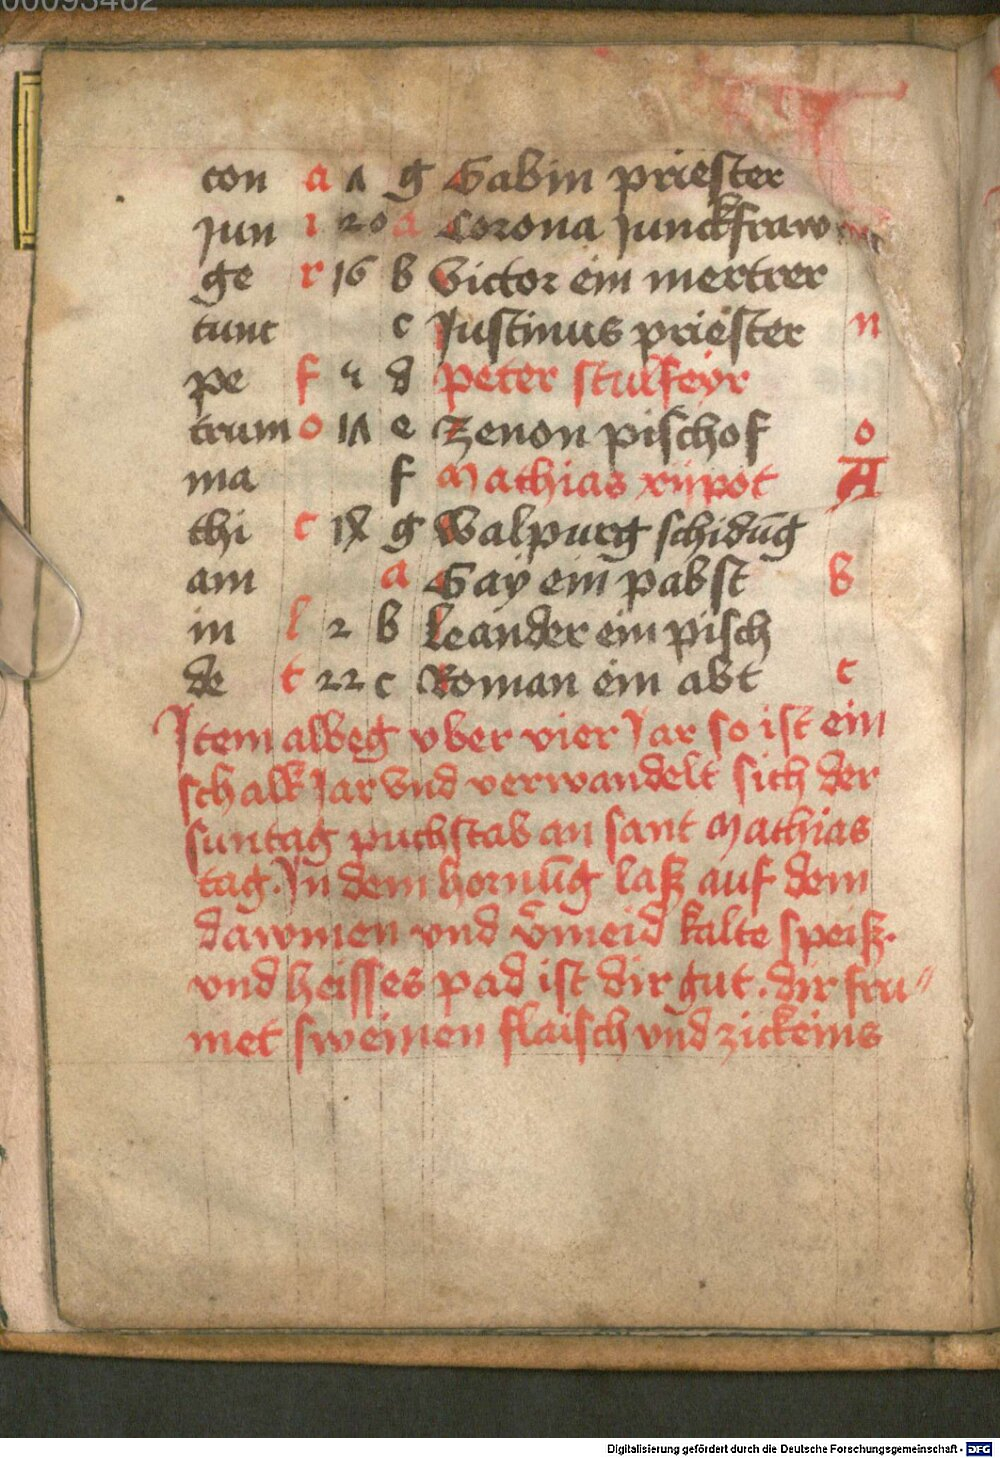 00093462
con a Λ g Gabin priester
Jun i 20 a Corona Junckfraw m
ge r 16 b Victor ein mertrer
tunc c Justinus priester n
pe f 4 d peter stulfeyr
trum o 1Λ e Zenon pischof o
ma f Mathias xijpot A
thi c 18 g Walpurg schidūg
am a Gay ein pabst b
in l 2 b leander ein pisch
de t 22 c Roman ein abt c
Item albeg vber vier Jar so ist ein
schalk Jar vnd verwandelt sich der
suntag puchstab an sant Mathias
tag. In dem hornūg laß auf dem
dawmen vnd v̄meid kalte speiß.
vnd heisses pad ist dir gut. dir fru〃
met sweinen flaisch vnd zickeins
Digitalisierung gefördert durch die Deutsche Forschungsgemeinschaft - DFG